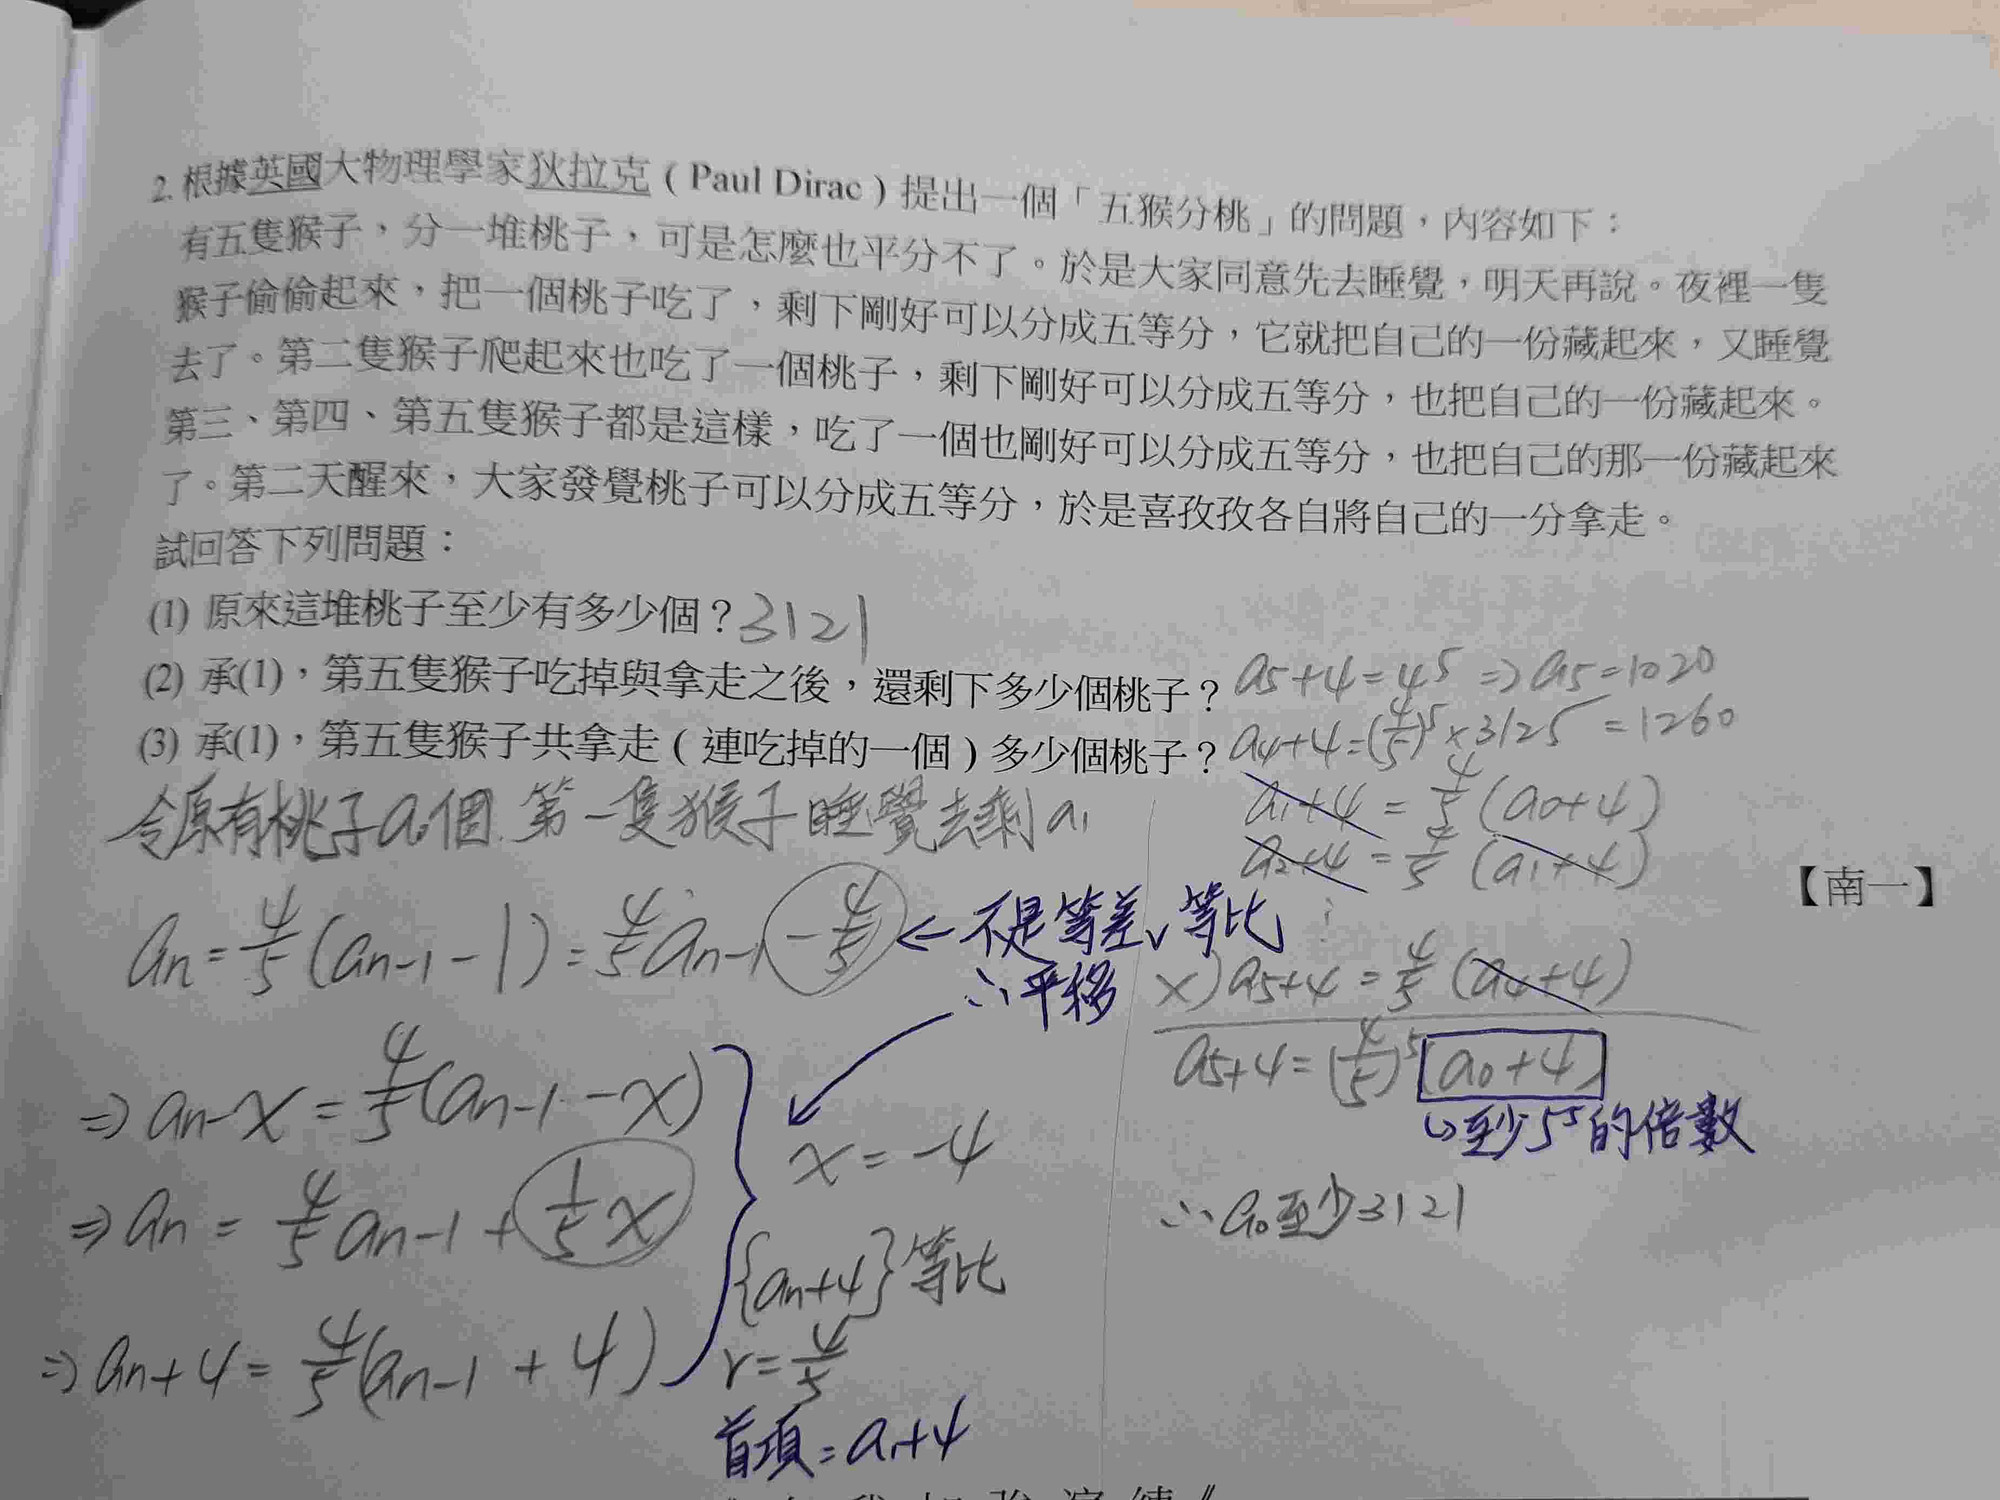 2. 根據英國大物理學家狄拉克（Paul Dirac）提出一個「五猴分桃」的問題，內容如下：
有五隻猴子，分一堆桃子，可是怎麼也平分不了。於是大家同意先去睡覺，明天再說。夜裡一隻
猴子偷偷起來，把一個桃子吃了，剩下剛好可以分成五等分，它就把自己的一份藏起來，又睡覺
去了。第二隻猴子爬起來也吃了一個桃子，剩下剛好可以分成五等分，也把自己的一份藏起來。
第三、第四、第五隻猴子都是這樣，吃了一個也剛好可以分成五等分，也把自己的那一份藏起來
了。第二天醒來，大家發覺桃子可以分成五等分，於是喜孜孜各自將自己的一分拿走。
試回答下列問題：
(1) 原來這堆桃子至少有多少個？3121
(2) 承(1)，第五隻猴子吃掉與拿走之後，還剩下多少個桃子？a5+4=4^5 ⇒ a5=1020
(3) 承(1)，第五隻猴子共拿走（連吃掉的一個）多少個桃子？a4+4=(4/5)^5×3125=1260
令原有桃子a0個．第一隻猴子睡覺去剩a1
a1+4=4/5(a0+4)
a2+4=4/5(a1+4)
【南一】
an=4/5(an-1-1)=4/5an-1-4/5←不是等差、等比
∴平移
⋮
×)a5+4=4/5(a4+4)
a5+4=(4/5)^5(a0+4)
↳至少5^5的倍數
∴a0至少3121
⇒an-x=4/5(an-1-x)
x=-4
⇒an=4/5an-1+1/5x
{an+4}等比
⇒an+4=4/5(an-1+4)
r=4/5
首項=a1+4